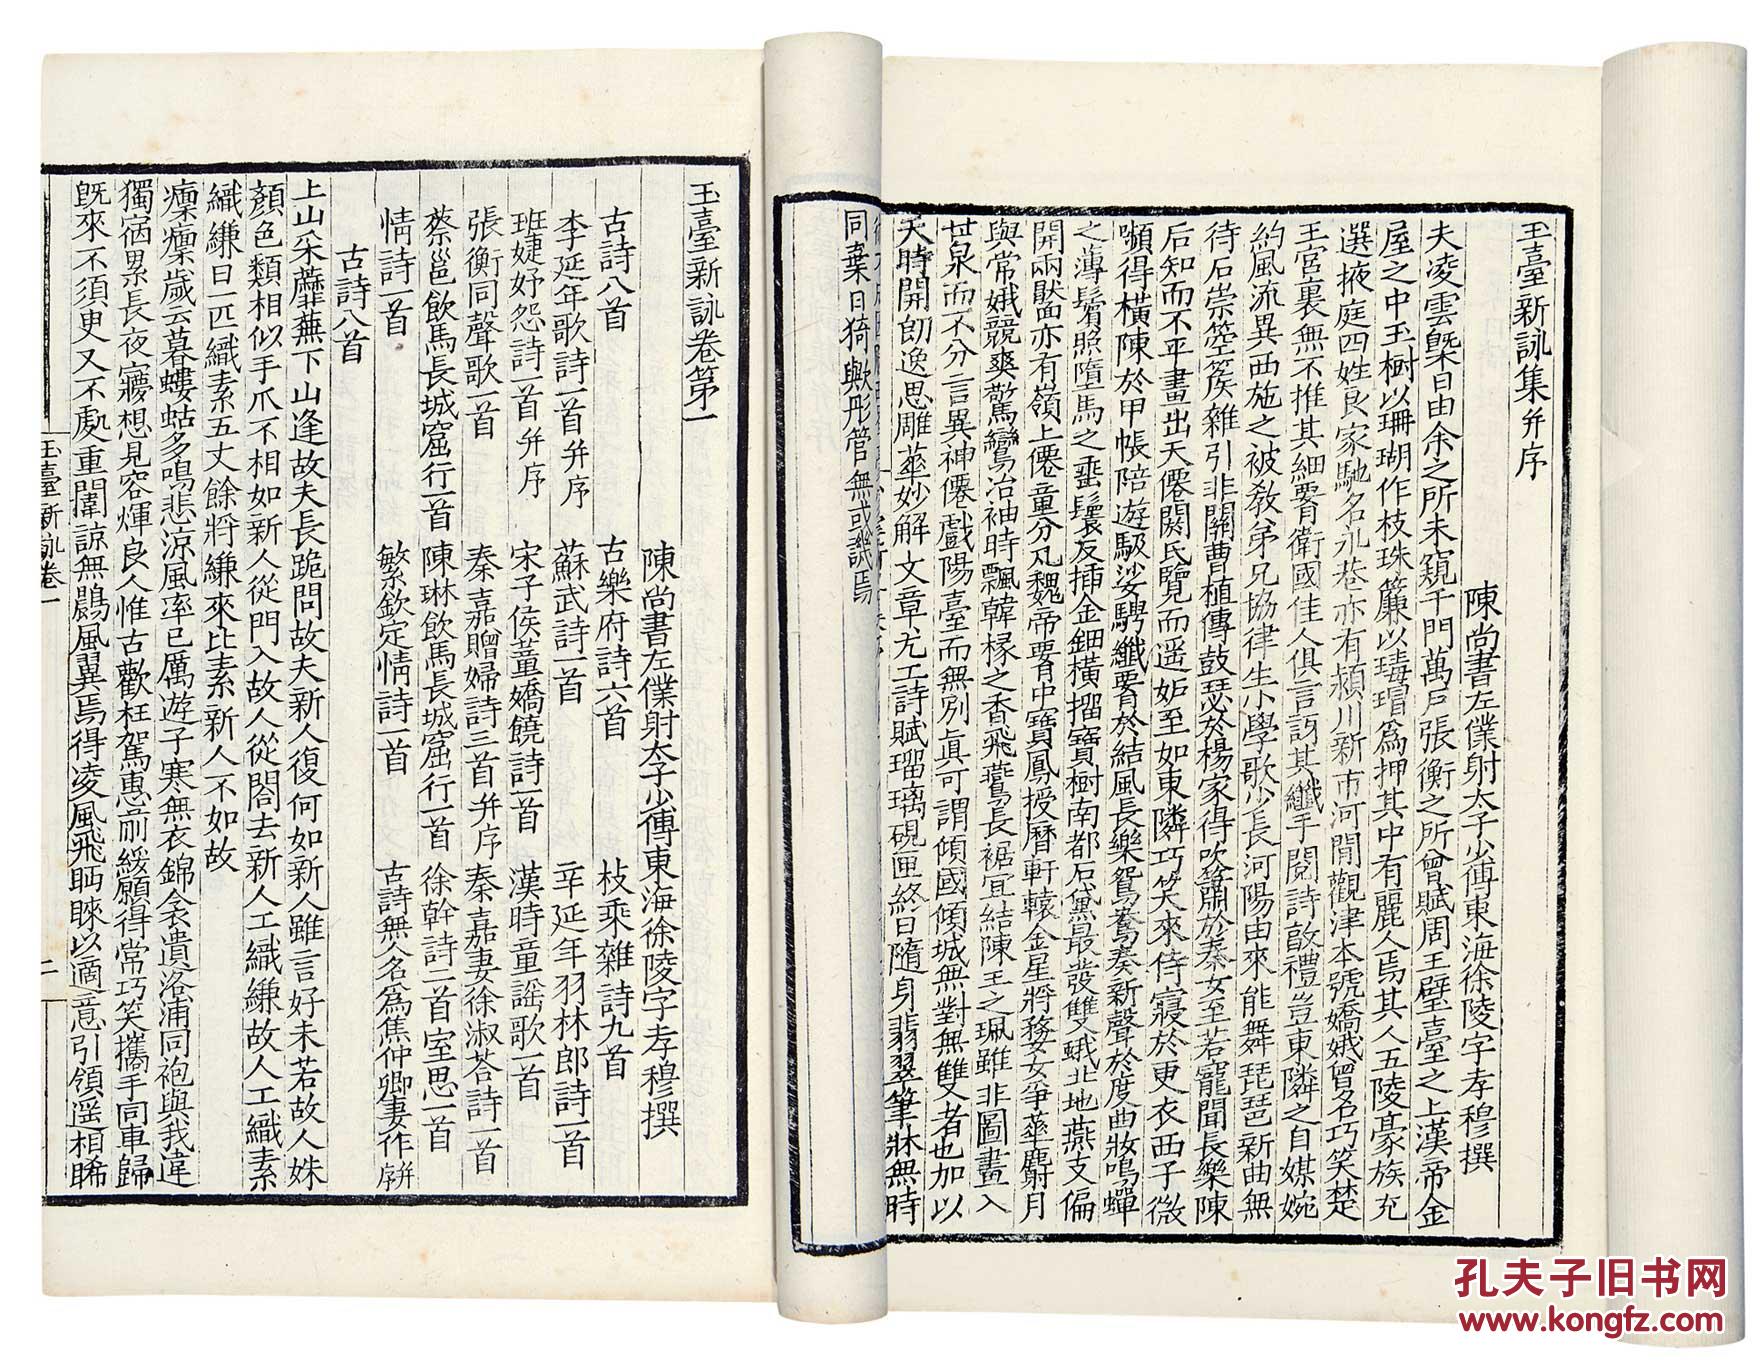 玉臺新詠集并序
陳尚書左僕射太子少傅東海徐陵字孝穆撰
夫凌雲槩日由余之所未窺千門萬戶張衡之所曾賦周王璧臺之上漢帝金
屋之中玉樹以珊瑚作枝珠簾以瑇瑁爲押其中有麗人焉其人五陵豪族充
選掖庭四姓良家馳名永巷亦有潁川新市河間觀津本號嬌娥曾名巧笑楚
王宮裏無不推其細𦝫衛國佳人俱言訝其纖手閱詩敦禮豈東隣之自媒婉
約風流異西施之被教弟兄協律生小學歌少長河陽由來能舞琵琶新曲無
待石崇箜篌雜引非關曹植傳鼓瑟於楊家得吹簫於秦女至若寵聞長樂陳
后知而不平畫出天僊閼氏覽而遥妬至如東隣巧笑來侍寢於更衣西子微
顰得橫陳於甲帳陪遊馺娑騁纖𦝫於結風長樂鴛鴦奏新聲於度曲妝鳴蟬
之薄鬢照墮馬之垂鬟反揷金鈿橫㩅寶樹南都石黛最發雙蛾北地燕支偏
開兩靨亦有嶺上僊童分丸魏帝𦝫中寶鳳授曆軒轅金星將婺女爭華麝月
與常娥競爽驚鸞冶袖時飄韓掾之香飛鷰長裾宜結陳王之珮雖非圖畫入
甘泉而不分言異神僊戲陽臺而無別眞可謂傾國傾城無對無雙者也加以
天時開朗逸思雕華妙解文章尤工詩賦瑠璃硯匣終日隨身翡翠筆牀無時
同棄日猗歟彤管無或譏焉
玉臺新詠卷第一
陳尚書左僕射太子少傅東海徐陵字孝穆撰
古詩八首　古樂府詩六首　枝乘雜詩九首
李延年歌詩一首并序　蘇武詩一首　辛延年羽林郎詩一首
班婕妤怨詩一首并序　宋子侯董嬌饒詩一首　漢時童謡歌一首
張衡同聲歌一首　秦嘉贈婦詩三首并序　秦嘉妻徐淑荅詩一首
蔡邕飲馬長城窟行一首　陳琳飲馬長城窟行一首　徐幹詩二首室思一首
情詩一首　繁欽定情詩一首　古詩無人名爲焦仲卿妻作并序
古詩八首
上山采蘼蕪下山逢故夫長跪問故夫新人復何如新人雖言好未若故人姝
顏色類相似手爪不相如新人從門入故人從閤去新人工織縑故人工織素
織縑日一匹織素五丈餘將縑來比素新人不如故
凜凜歲云暮螻蛄多鳴悲涼風率已厲遊子寒無衣錦衾遺洛浦同袍與我違
獨宿累長夜夢想見容輝良人惟古歡枉駕惠前綏願得常巧笑攜手同車歸
既來不須臾又不處重闈諒無鷐風翼焉得凌風飛眄睞以適意引領遥相睎
玉臺新詠卷一
二
孔夫子旧书网
www.kongfz.com